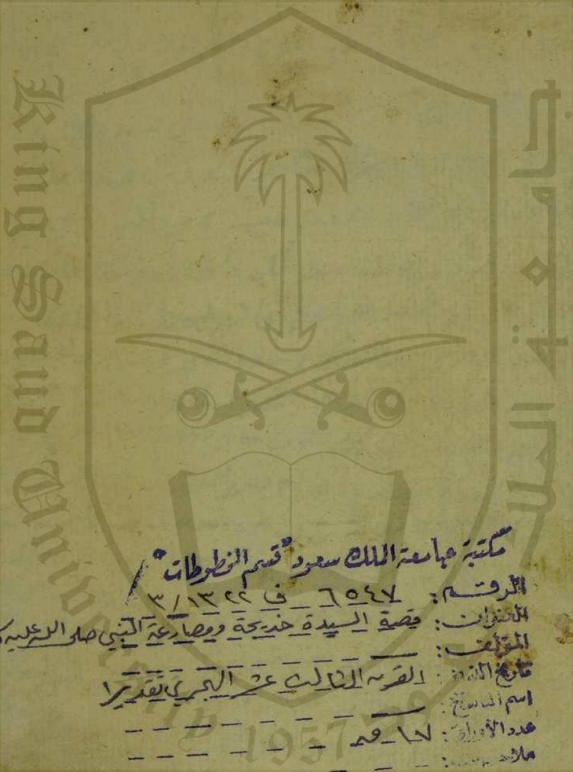 King Saud University
جامعة الملك
مكتبة جامعة الملك سعود "قسم المخطوطات"
الرقم: ٦٥٤٧ ف ١٣٢٢/٣
العنوان: قصة السيدة خديجة ومصارعة النبي صلى الله عليه
المؤلف:
تاريخ النسخ: القرن الثالث عشر الهجري تقديرا
اسم الناسخ:
عدد الأوراق: ١٧ ق
1957